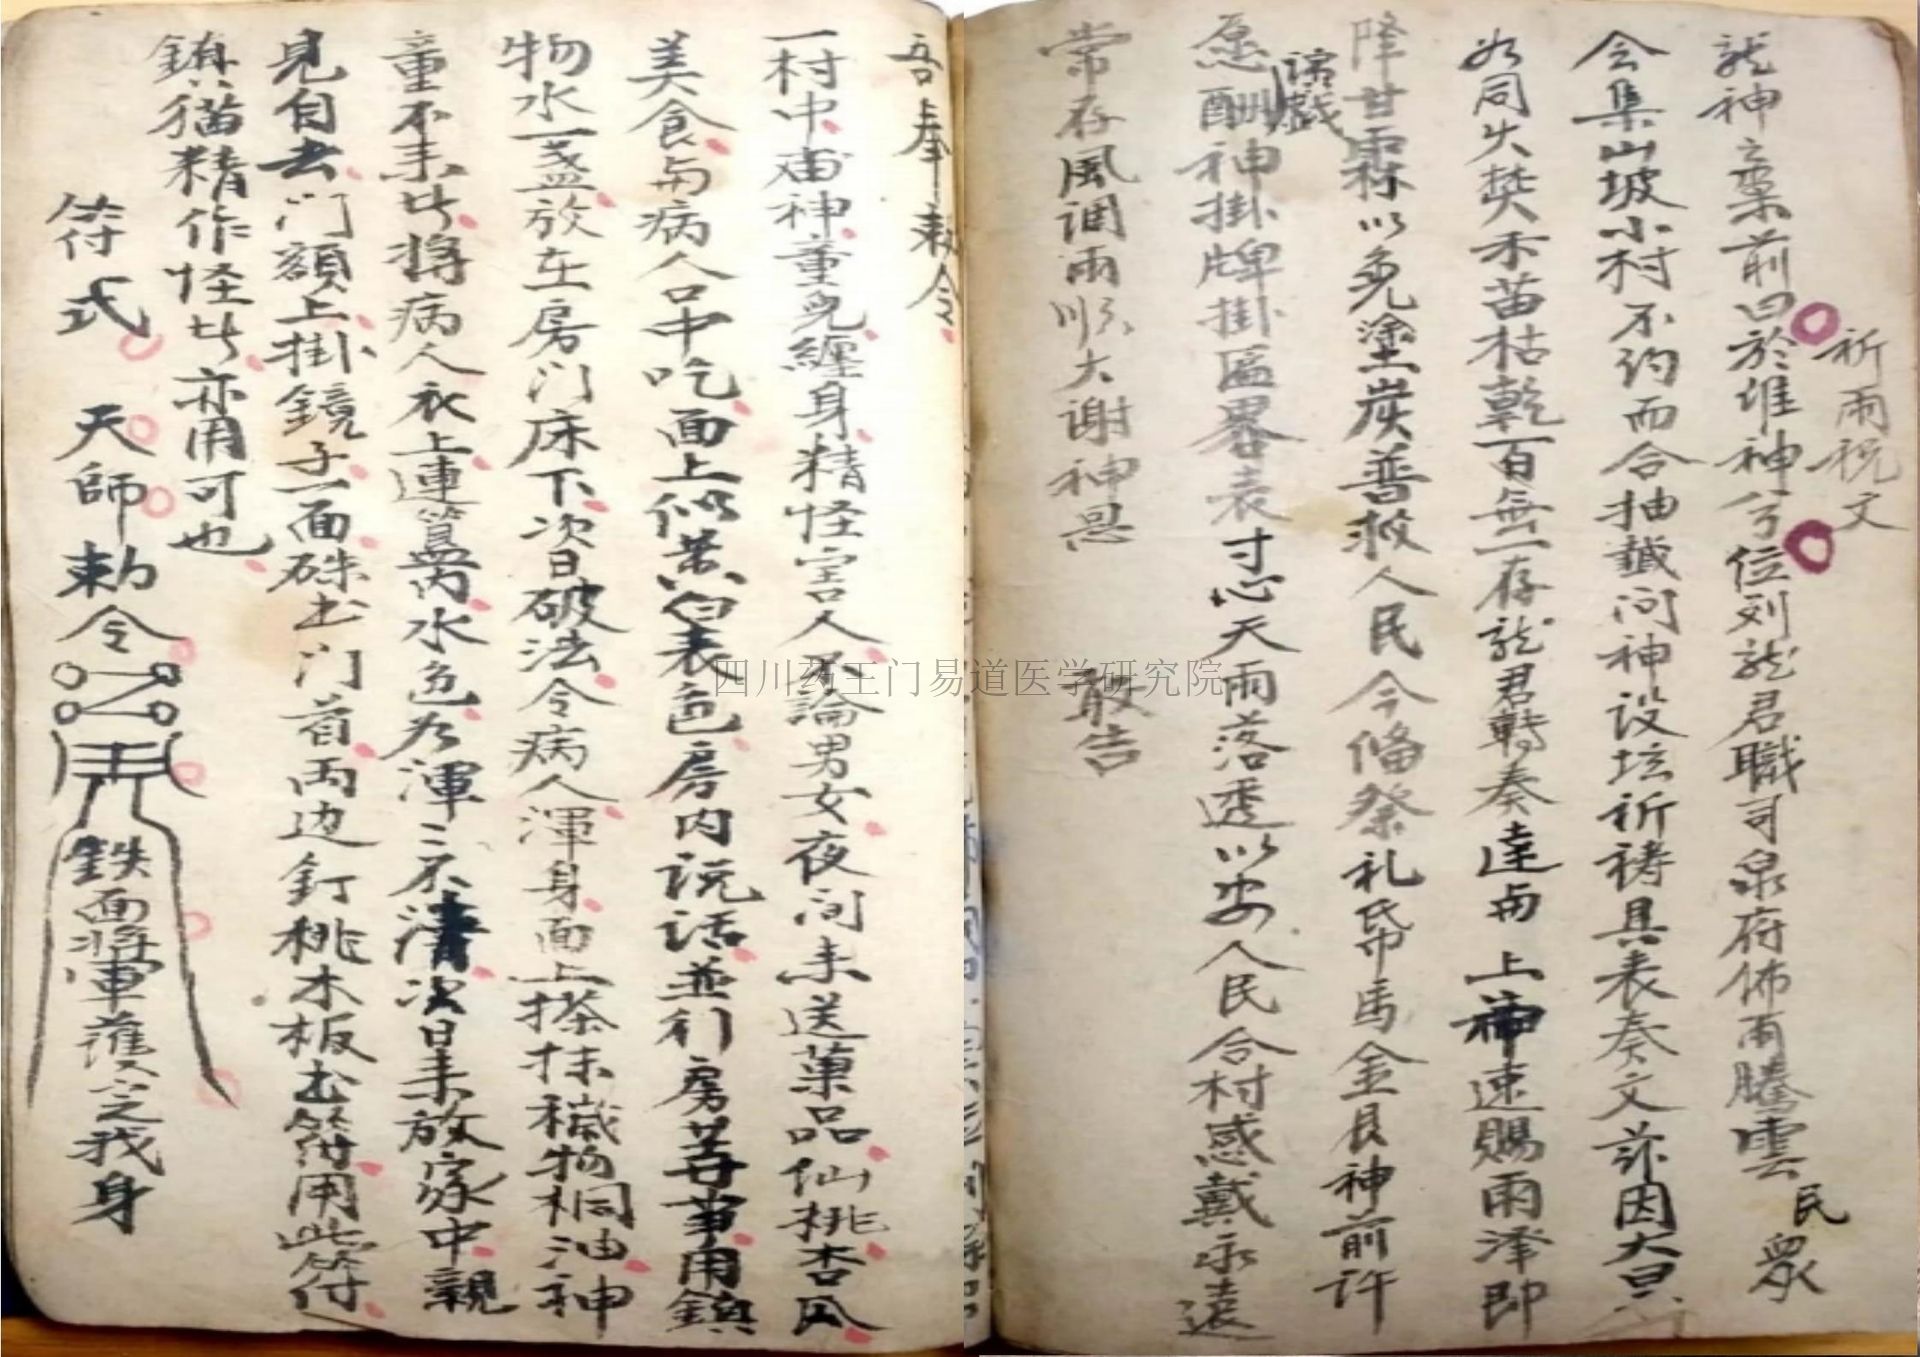 祈雨祝文
龍神之稟前曰於維神兮位列龍君職司泉府佈雨騰雲民衆
会集山坡小村不约而合抽籤问神设坛祈祷具表奏文兹因大旱
如同火焚禾苗枯乾百無一存龍君轉奏達與上神速賜雨泽即
降甘霖以免塗炭普救人民今俻祭礼帋馬金艮神前许
愿謡戲酬神掛牌掛匾畧表寸心天雨落透以安人民合村感戴永遠
常存風调雨顺大谢神恩
敢告
吾奉敕令
一村中庙神童児纏身精怪害人不論男女夜间来送菓品仙桃杏瓜
美食与病人口中吃面上似黄白表色房内说话並利房某事用鎮
物水一盏放在房门床下次日破法令病人渾身面上搽抹穢物桐油神
童不来此将病人衣上連篡为水色为渾三不清次日来放家中親
見自去门额上掛鏡子一面硃书门首两边釘桃木板书符用此符
鎮猫精作怪此亦用可也
符式
天師勅令
鉄面將軍護之我身
四川药王门易道医学研究院